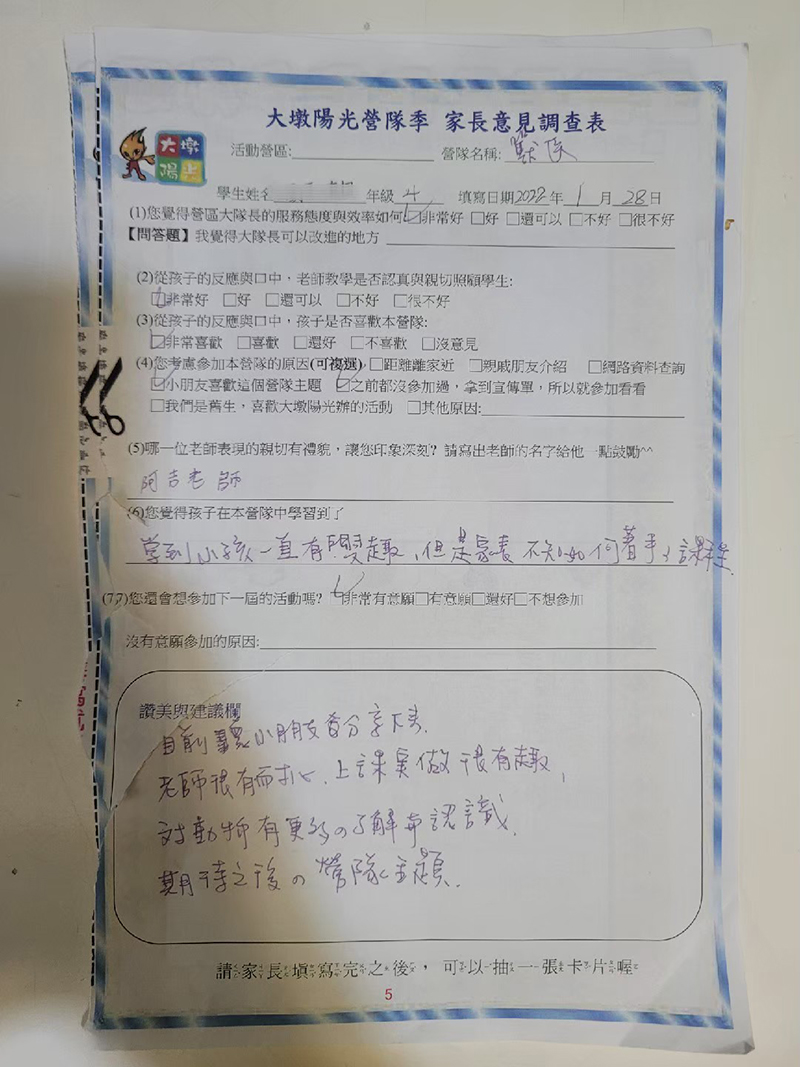 大墩陽光營隊季 家長意見調查表
大墩
陽光
活動營區: 營隊名稱: 獸醫
學生姓名 年級 4 填寫日期2022年 1 月 28 日
(1)您覺得營區大隊長的服務態度與效率如何☑非常好 □好 □還可以 □不好 □很不好
【問答題】我覺得大隊長可以改進的地方
(2)從孩子的反應與口中，老師教學是否認真與親切照顧學生:
☑非常好 □好 □還可以 □不好 □很不好
(3)從孩子的反應與口中，孩子是否喜歡本營隊:
☑非常喜歡 □喜歡 □還好 □不喜歡 □沒意見
(4)您考慮參加本營隊的原因(可複選)□距離離家近 □親戚朋友介紹 □網路資料查詢
☑小朋友喜歡這個營隊主題 ☑之前都沒參加過，拿到宣傳單，所以就參加看看
□我們是舊生，喜歡大墩陽光辦的活動 □其他原因:
(5)哪一位老師表現的親切有禮貌，讓您印象深刻? 請寫出老師的名字給他一點鼓勵^^
阿吉老師
(6)您覺得孩子在本營隊中學習到了
學到小孩一直有興趣，但是家長不知如何著手的課程
(7,7)您還會想參加下一屆的活動嗎? ☑非常有意願□有意願□還好□不想參加
沒有意願參加的原因:
讚美與建議欄
目前聽小朋友分享下來.
老師很有耐心.上課實做很有趣,
對動物有更多的了解與認識.
期待之後の營隊主題.
請家長填寫完之後，可以抽一張卡片喔
5